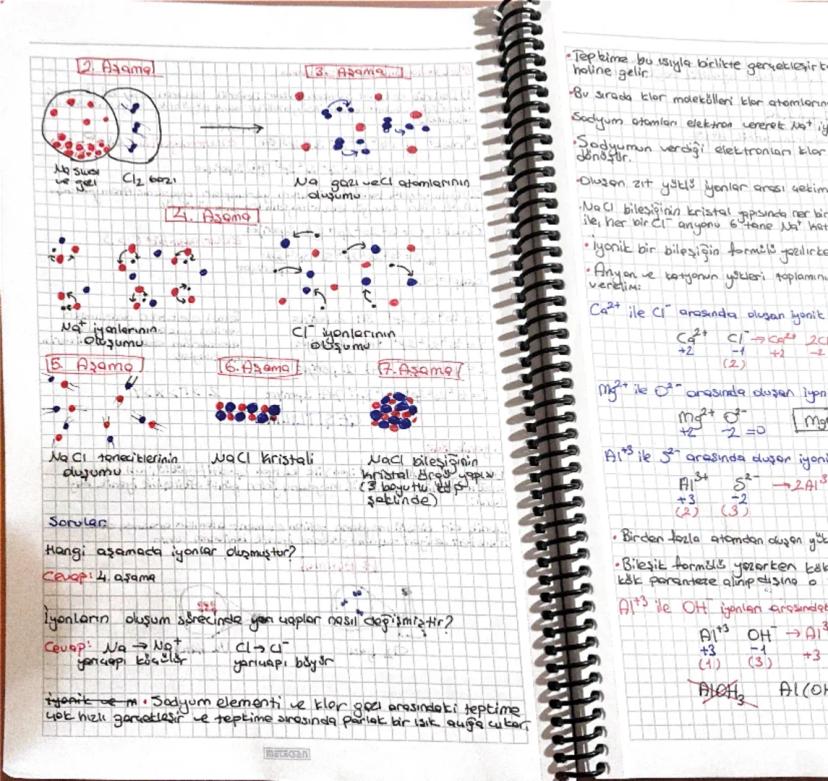 2. Aşama
3. Aşama
Na sıvısı
ve gazı
Cl2 gazı
Na gazı ve Cl atomlarının
oluşumu
4. Aşama
Na+ iyonlarının
oluşumu
Cl- iyonlarının
oluşumu
5. Aşama
6. Aşama
7. Aşama
NaCl taneciklerinin
oluşumu
NaCl kristali
NaCl bileşiğinin
kristal örgü yapısı
(3 boyutlu küp
şeklinde)
Sorular
Hangi aşamada iyonlar oluşmuştur?
Cevap: 4. aşama
İyonların oluşum sürecinde yarıçaplar nasıl değişmiştir?
Cevap: Na → Na+
yarıçapı küçülür
Cl → Cl-
yarıçapı büyür
iyonik ve m • Sodyum elementi ve klor gazı arasındaki tepkime
çok hızlı gerçekleşir ve tepkime sırasında parlak bir ışık açığa çıkar.
• Tepkime bu ısıyla birlikte gerçekleşir
haline gelir
• Bu sırada klor molekülleri klor
Sodyum atomları elektron vererek Na+
• Sodyumun verdiği elektronları klor
dönüşür.
• Oluşan zıt yüklü iyonlar arası
• NaCl bileşiğinin kristal yapısında her bir
ile, her bir Cl- anyonu 6 tane Na+
• İyonik bir bileşiğin formülü
• Anyon ve katyonun yükleri
verelim:
Ca2+ ile Cl- arasında oluşan iyonik
Ca2+ Cl- → Ca2+
+2 -1 +2 -2
(2)
Mg2+ ile O2- arasında oluşan
Mg2+ O2-
+2 -2 =0
Al+3 ile S2- arasında oluşan
Al3+ S2- → 2Al3
+3 -2
(2) (3)
• Birden fazla atomdan oluşan
• Bileşik formülü yazarken
kök paranteze alınıp dışına
Al+3 ile OH- iyonları
Al+3 OH- → Al3
+3 -1 +3
(1) (3)
AlOH3 Al(OH